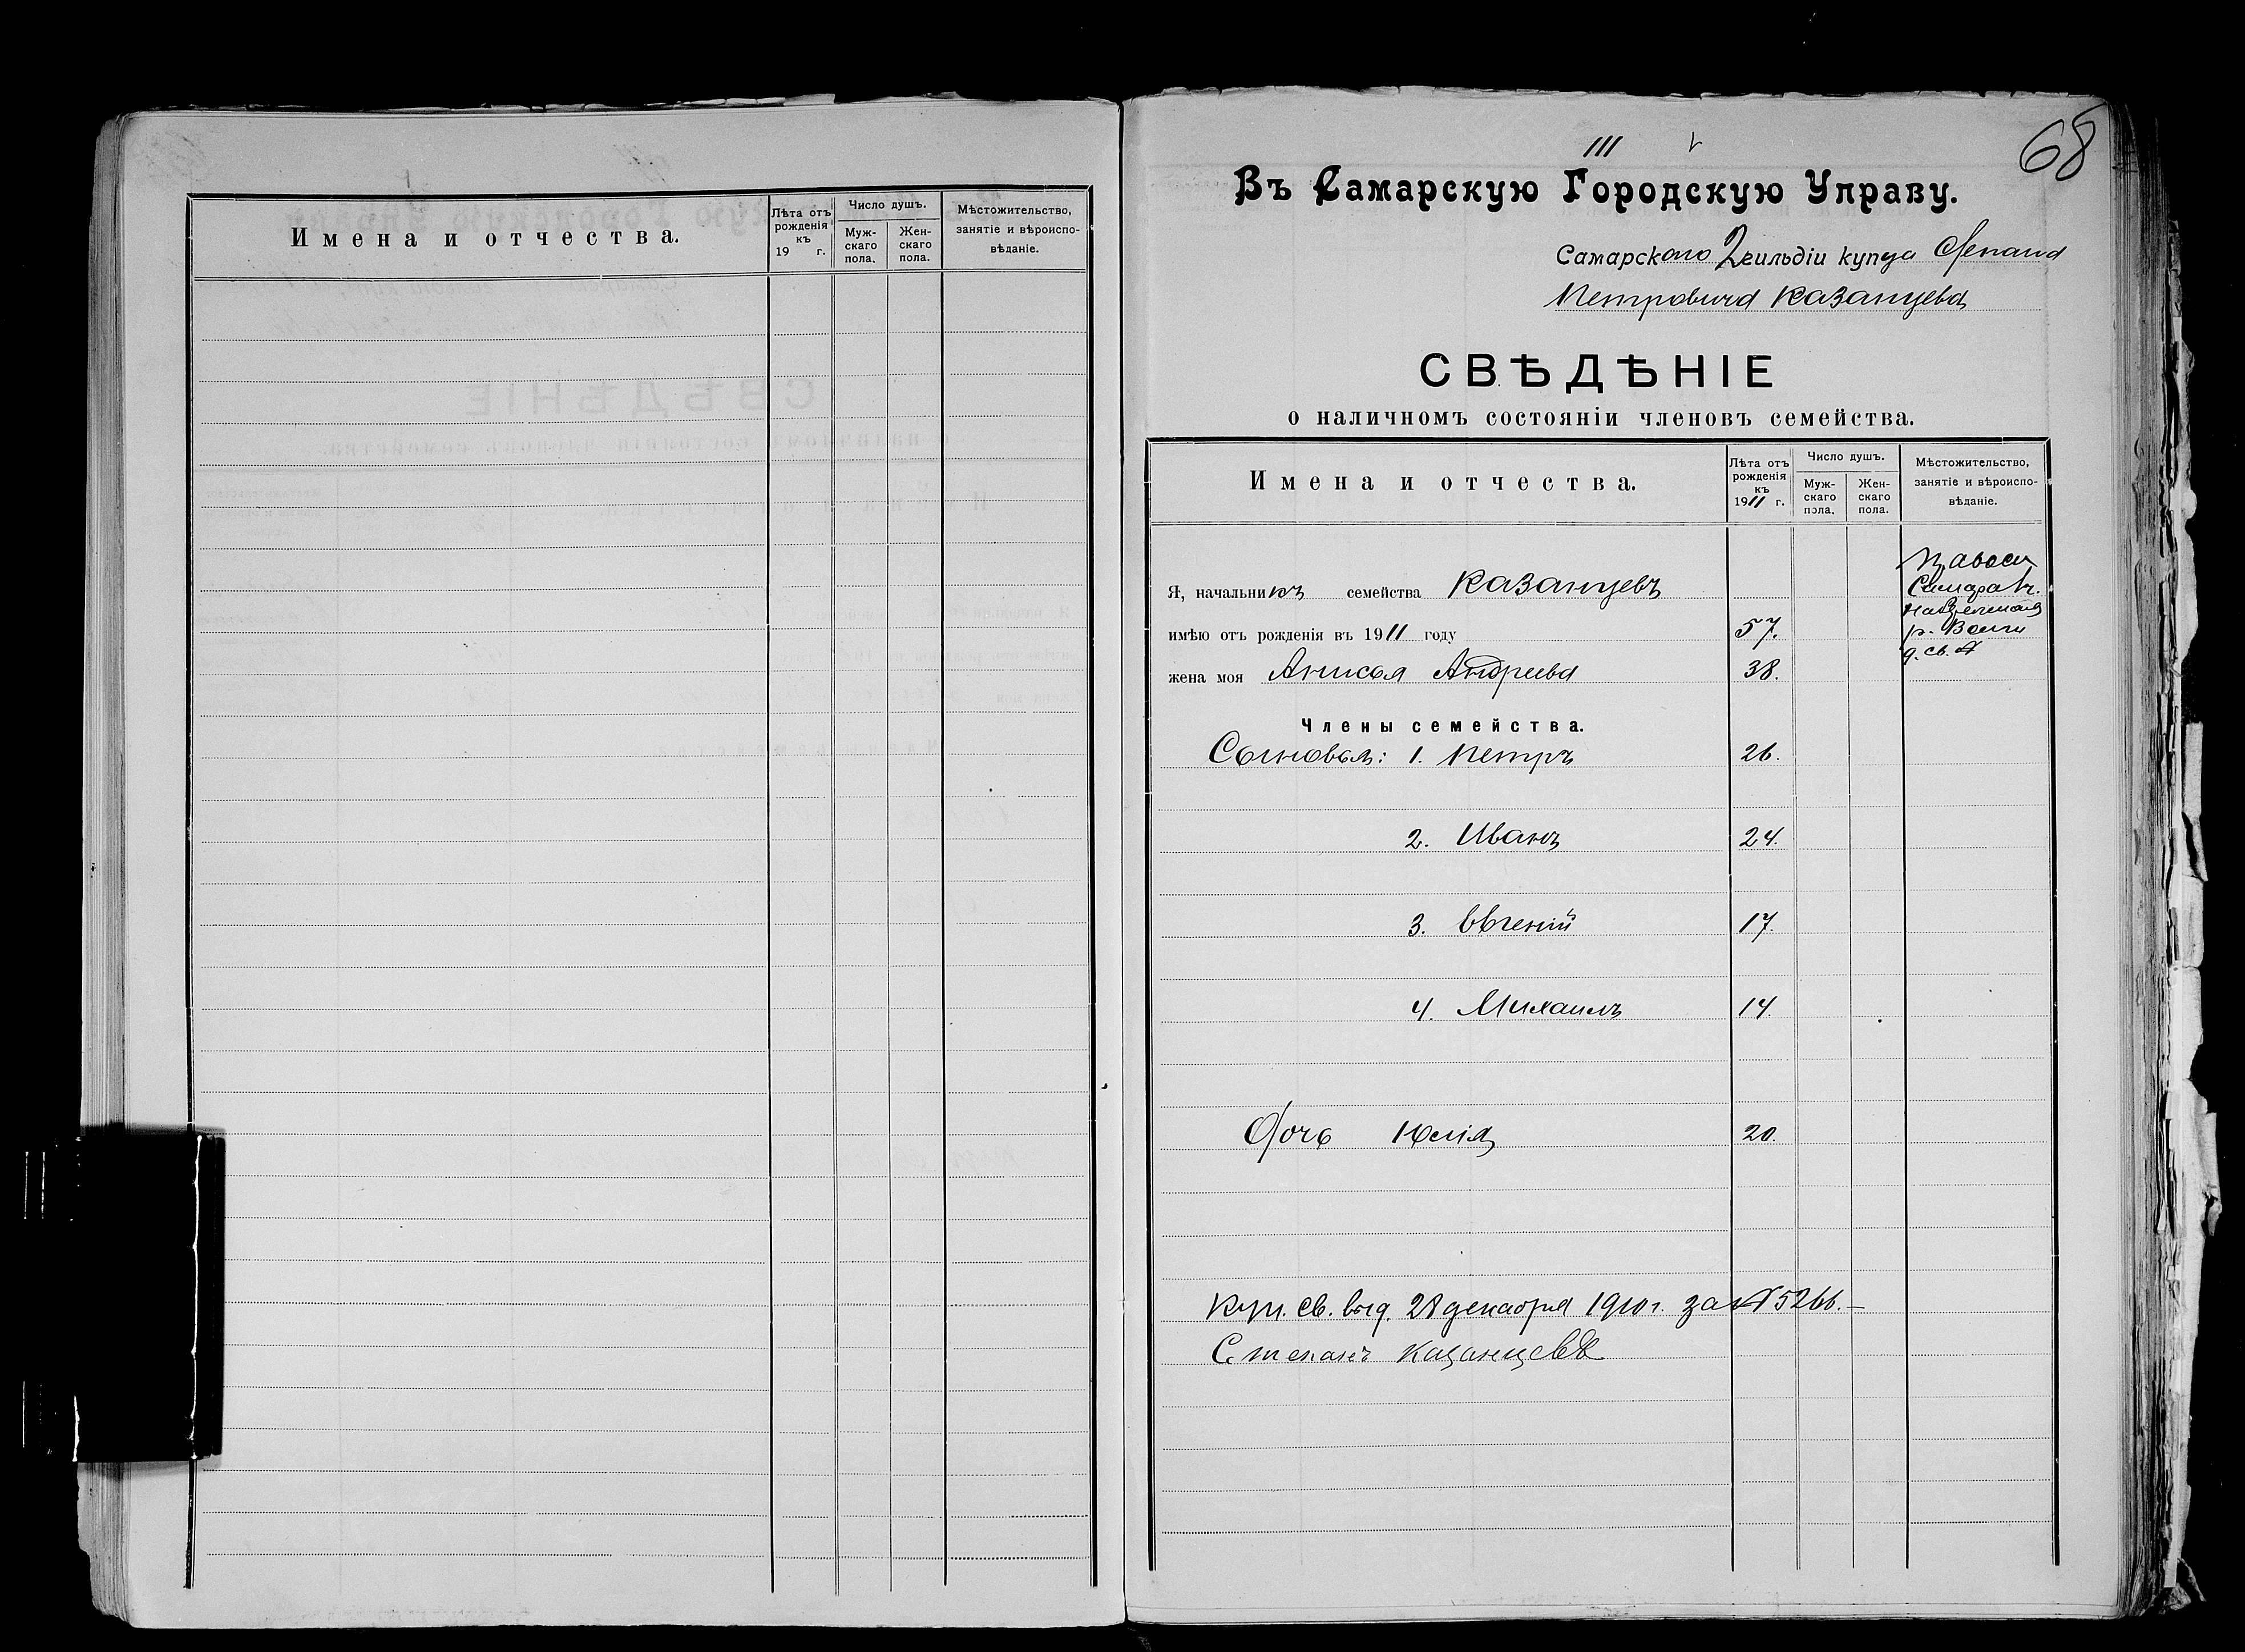 Имена и отчества.
Лѣта отъ рожденія къ 19 г.
Число душъ.
Муж-
скаго
пола.
Жен-
скаго
пола.
Мѣстожительство,
занятіе и вѣроиспо-
вѣданіе.
68
III
Въ Самарскую Городскую Управу.
Самарскаго 2 гильдіи купца Степана
Петровича Казанцева
СВѢДѢНІЕ
о наличномъ состояніи членовъ семейства.
Имена и отчества.
Лѣта отъ
рожденія
къ
1911 г.
Число душъ.
Муж-
скаго
пола.
Жен-
скаго
пола.
Мѣстожительство,
занятіе и вѣроиспо-
вѣданіе.
Я, начальникъ семейства Казанцевъ
имѣю отъ рожденія въ 1911 году 57.
жена моя Анисья Андреева 38.
Правосл
Самара
р. Волги
д. св. №
Члены семейства.
Сыновья: 1. Петръ 26.
2. Иванъ 24.
3. Евгеній 17.
4. Михаилъ 14.
Дочь Юлія 20.
Куп. св. выд. 28 декабря 1910 г. за № 5266.—
Степанъ Казанцевъ